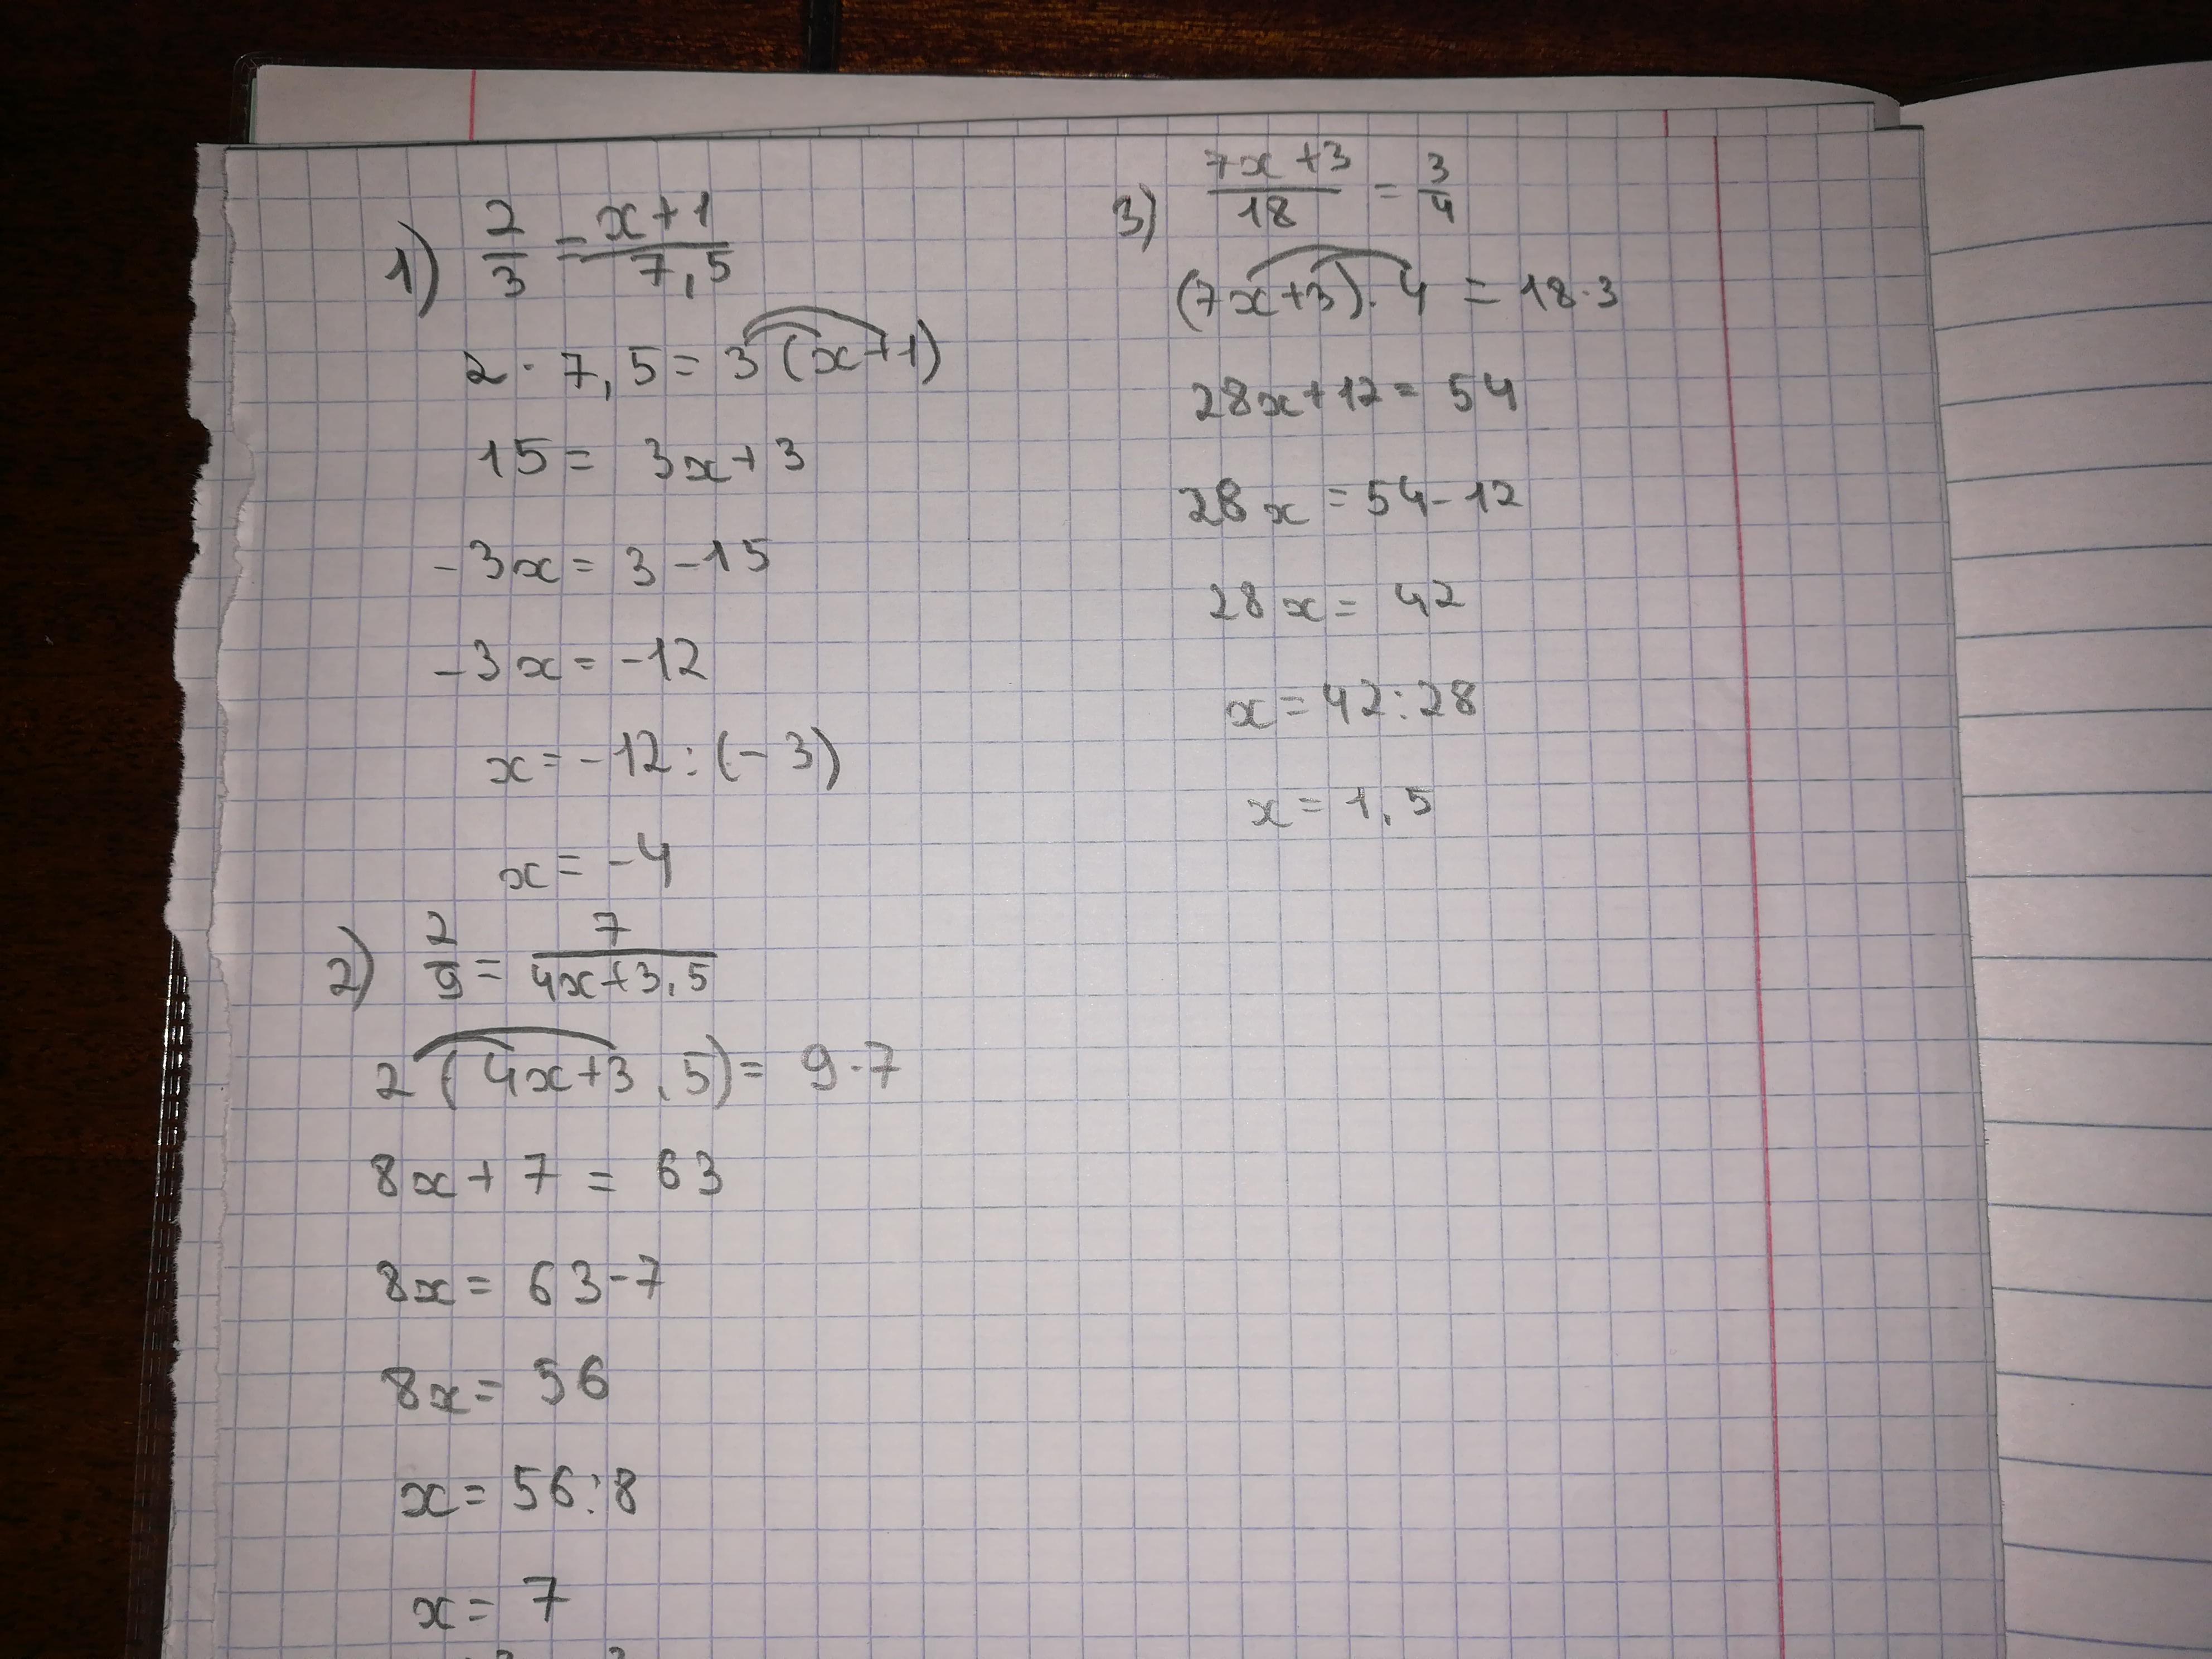 1) 2/3 = x+1/7,5
2 · 7,5 = 3 (x+1)
15 = 3x + 3
- 3x = 3 - 15
- 3x = - 12
x = - 12 : (- 3)
x = - 4
2) 2/9 = 7/4x+3,5
2 (4x+3,5) = 9 · 7
8x + 7 = 63
8x = 63 - 7
8x = 56
x = 56 : 8
x = 7
3) 7x+3/18 = 3/4
(7x+3) · 4 = 18 · 3
28x + 12 = 54
28x = 54 - 12
28x = 42
x = 42 : 28
x = 1,5